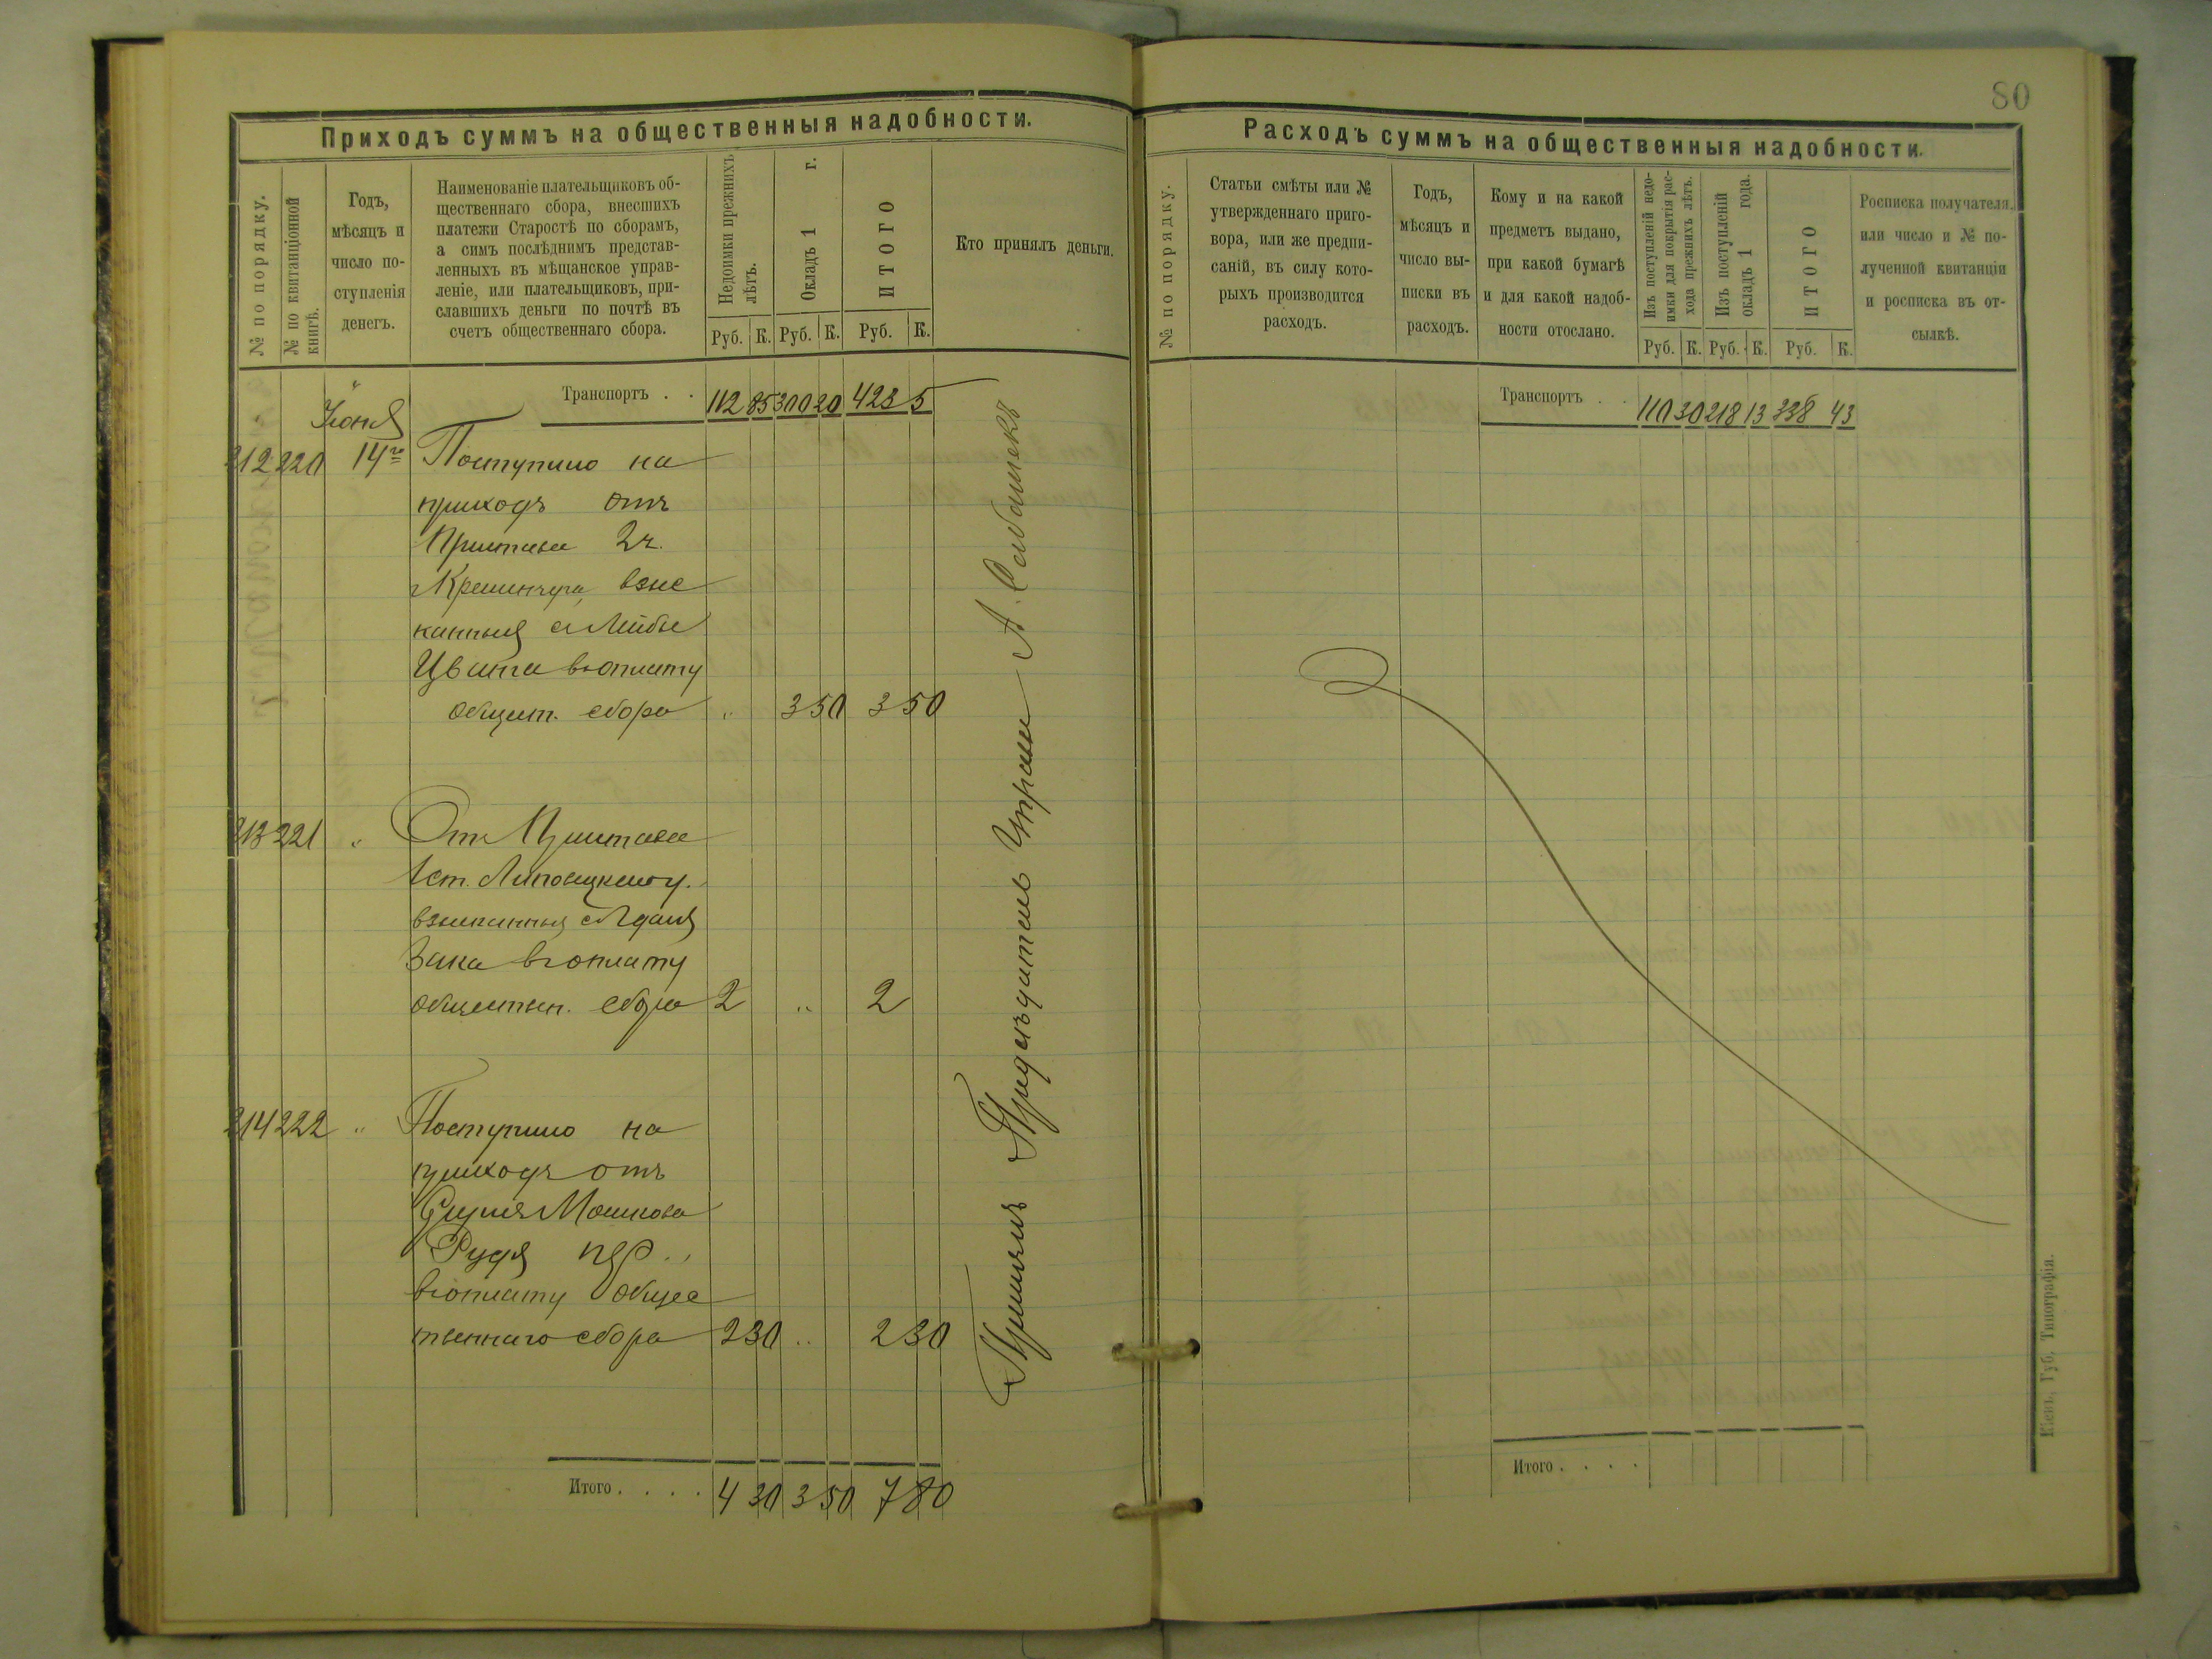 80
Приходъ суммъ на общественныя надобности.
№ по порядку.
№ по квитанціонной
книгѣ.
Годъ,
мѣсяцъ и
число по-
ступленія
денегъ.
Наименованіе плательщиковъ об-
щественнаго сбора, внесшихъ
платежи Старостѣ по сборамъ,
а симъ послѣднимъ представ-
ленныхъ въ мѣщанское управ-
леніе, или плательщиковъ, при-
славшихъ деньги по почтѣ въ
счетъ общественнаго сбора.
Недоимки прежнихъ
лѣтъ.
Окладъ 1 г.
ИТОГО
Руб. К. Руб. К. Руб. К.
Кто принялъ деньги.
Транспортъ . . 112 85 300 20 423 5
Іюня
212 220 14го Поступило на
приходъ отъ
Пристава 2 ч.
г Кременчуга, взыс
канныя с Лейбы
Цвита въ оплату
общест. сбора " 3 50 3 50
213 221 " От Пристава
1 ст. Липовецкого у.
взысканныя с
Зака въ оплату
обществен. сбора 2 " 2
214 222 " Поступило на
приходъ отъ
Мошкова
Рудя
въ оплату общес
твеннаго сбора 2 30 " 2 30
Итого . . . . 4 30 3 50 7 80
Принялъ Предсѣдатель Управы А.
Расходъ суммъ на общественныя надобности.
№ по порядку.
Статьи смѣты или №
утвержденнаго приго-
вора, или же предпи-
саній, въ силу кото-
рыхъ производится
расходъ.
Годъ,
мѣсяцъ и
число вы-
писки въ
расходъ.
Кому и на какой
предметъ выдано,
при какой бумагѣ
и для какой надоб-
ности отослано.
Изъ поступленій недо-
имки для покрытія рас-
хода прежнихъ лѣтъ.
Изъ поступленій
окладъ 1 года.
ИТОГО
Руб. К. Руб. К. Руб. К.
Росписка получателя,
или число и № по-
лученной квитанціи
и росписка въ от-
сылкѣ.
Транспортъ . . 110 30 218 13 338 43
Итого . . . .
Кіевъ, Губ. Типографія.